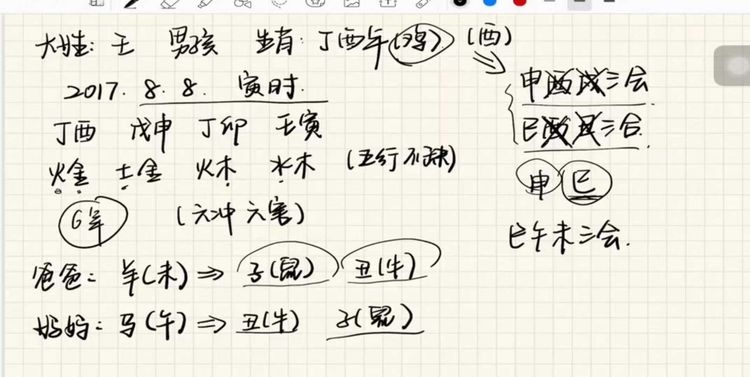 大姓：王 男孩 生肖：丁酉年(鸡) (酉)
2017. 8. 8. 寅时.
丁酉 戊申 丁卯 壬寅
火金 土金 火木 水木 (五行不缺)
(六冲 六害)
爸爸：羊(未) ⇒ 子(鼠) 丑(牛)
妈妈：马(午) ⇒ 丑(牛) 子(鼠)
申酉戌三会
巳酉丑三合.
申 巳
巳午未三会.